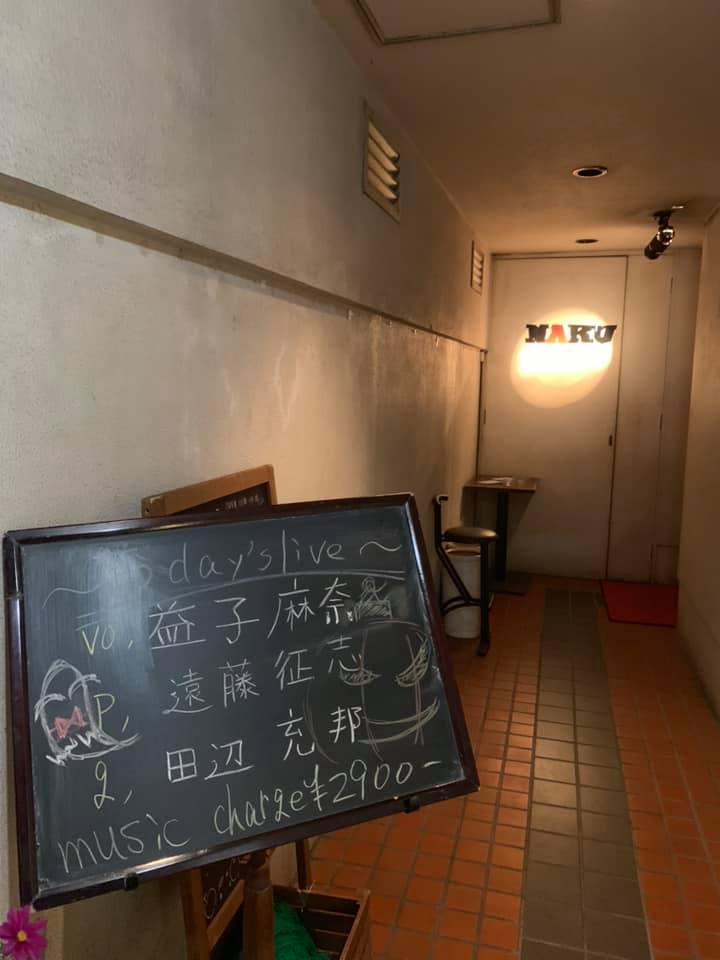 NAKU
～Today's live～
Vo, 益子麻奈
P, 遠藤征志
g, 田辺充邦
music charge¥2900-